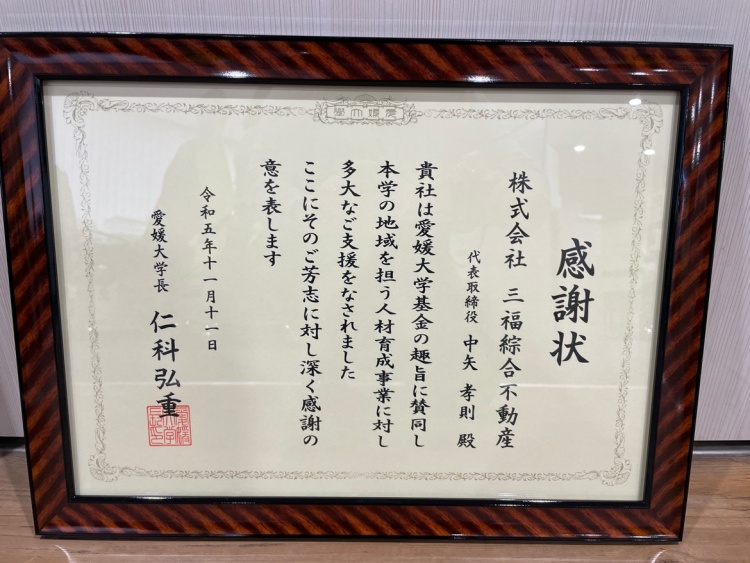 學大媛愛
感謝状
株式会社 三福綜合不動産
代表取締役 中矢 孝則 殿
貴社は愛媛大学基金の趣旨に賛同し
本学の地域を担う人材育成事業に対し
多大なご支援をなされました
ここにそのご芳志に対し深く感謝の
意を表します
令和五年十一月十一日
愛媛大学長 仁科弘重